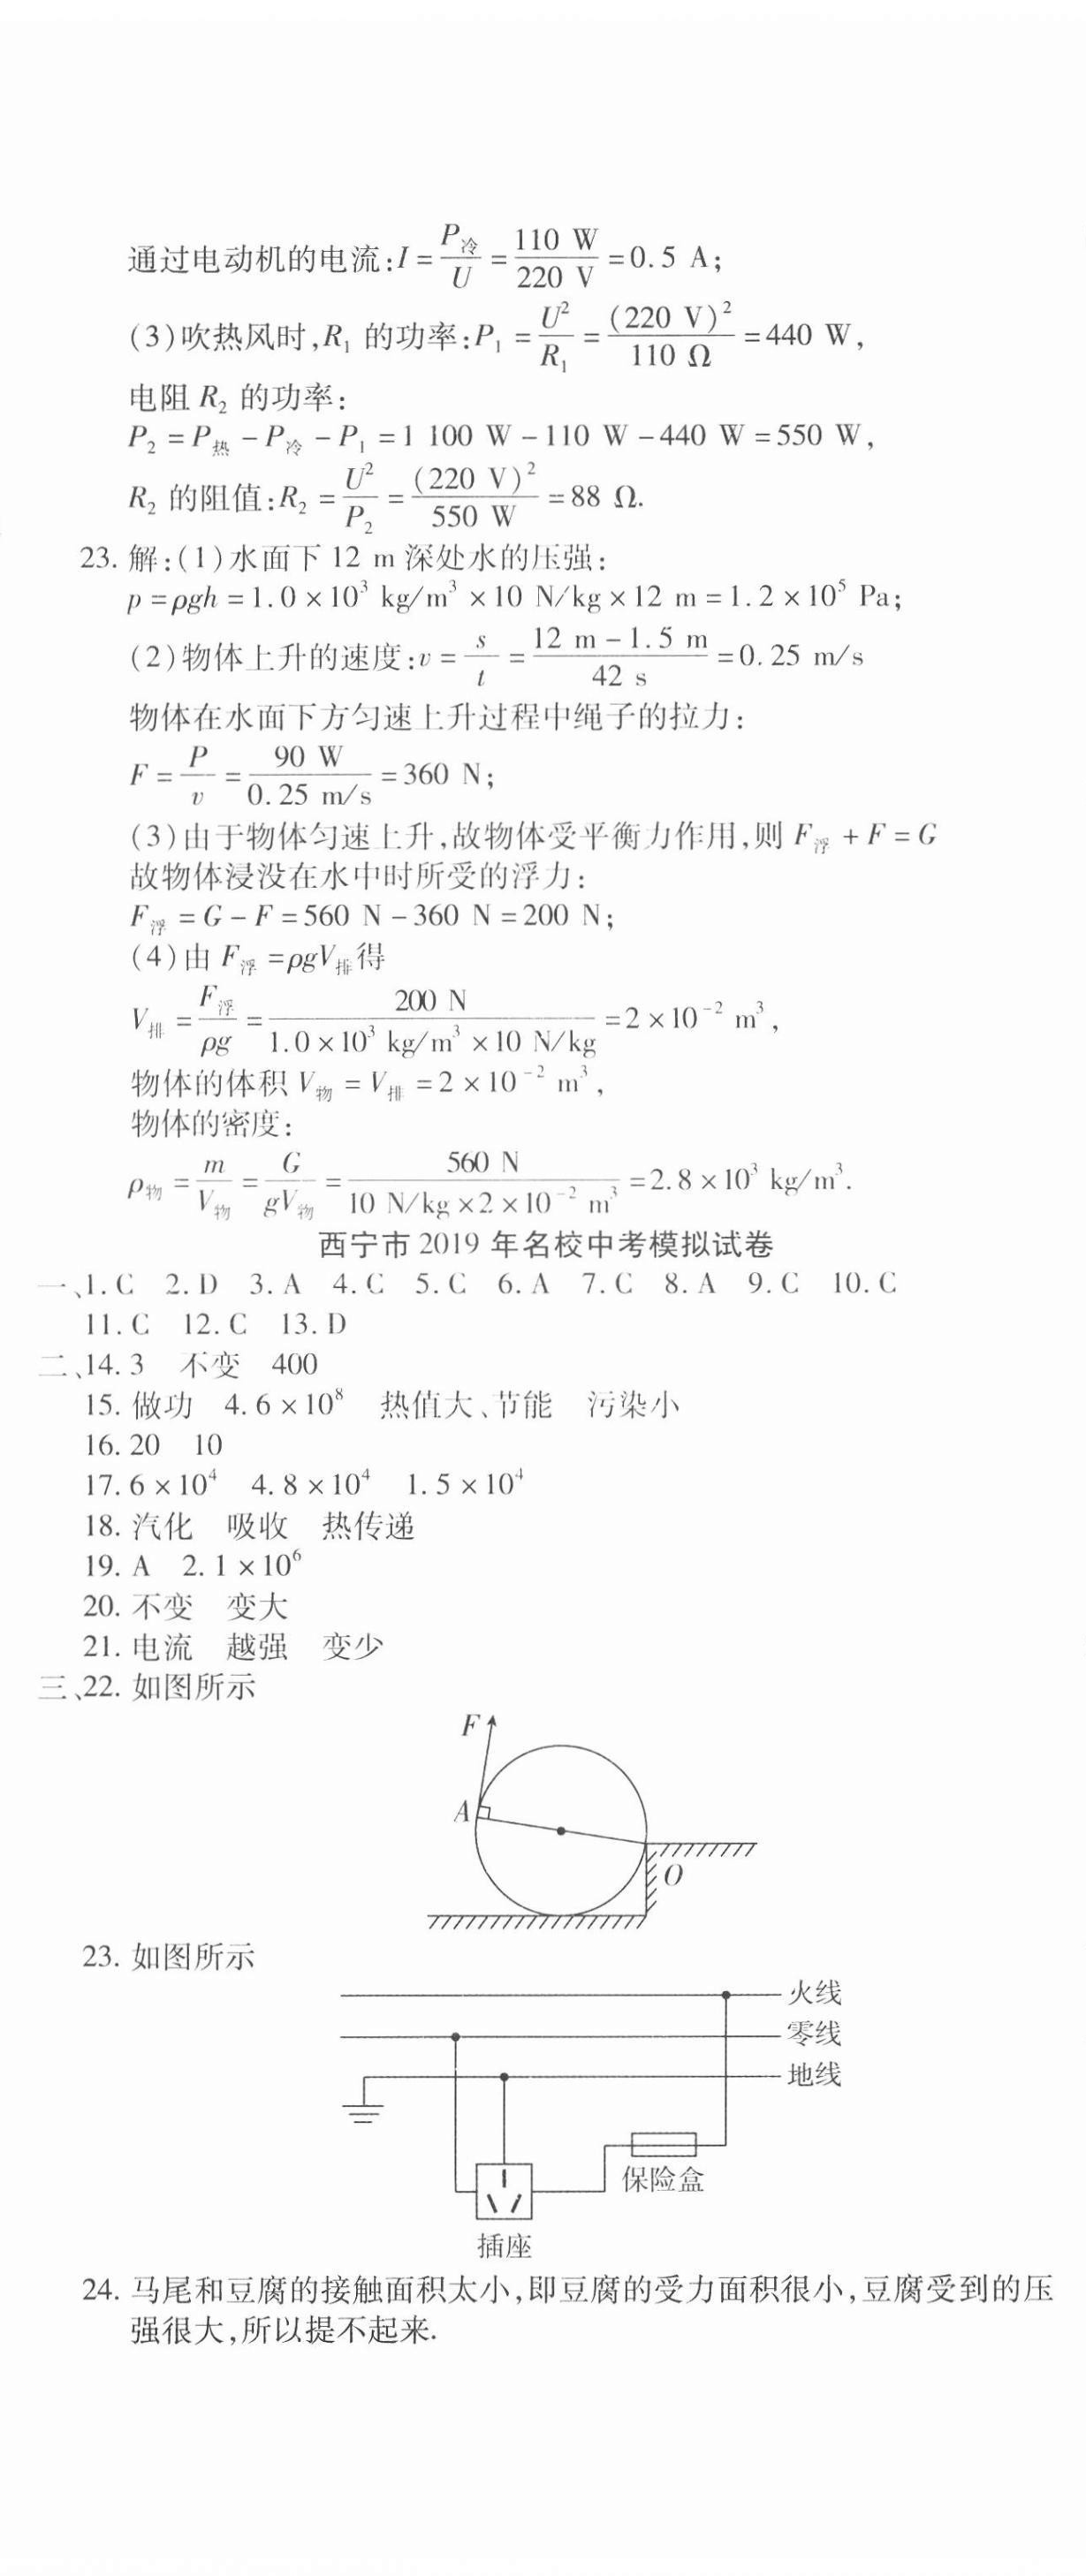 通过电动机的电流:I = P冷/U = 110 W/220 V = 0.5 A;
(3)吹热风时,R₁ 的功率:P₁ = U²/R₁ = (220 V)²/110 Ω = 440 W,
电阻 R₂ 的功率:
P₂ = P热 - P冷 - P₁ = 1 100 W - 110 W - 440 W = 550 W,
R₂ 的阻值:R₂ = U²/P₂ = (220 V)²/550 W = 88 Ω.
23. 解:(1)水面下 12 m 深处水的压强:
p = ρgh = 1.0 × 10³ kg/m³ × 10 N/kg × 12 m = 1.2 × 10⁵ Pa;
(2)物体上升的速度:v = s/t = (12 m - 1.5 m)/42 s = 0.25 m/s
物体在水面下方匀速上升过程中绳子的拉力:
F = P/v = 90 W/0.25 m/s = 360 N;
(3)由于物体匀速上升,故物体受平衡力作用,则 F浮 + F = G
故物体浸没在水中时所受的浮力:
F浮 = G - F = 560 N - 360 N = 200 N;
(4)由 F浮 = ρgV排得
V排 = F浮/ρg = 200 N/(1.0 × 10³ kg/m³ × 10 N/kg) = 2 × 10⁻² m³,
物体的体积 V物 = V排 = 2 × 10⁻² m³,
物体的密度:
ρ物 = m/V物 = G/gV物 = 560 N/(10 N/kg × 2 × 10⁻² m³) = 2.8 × 10³ kg/m³.
西宁市 2019 年名校中考模拟试卷
一、1. C 2. D 3. A 4. C 5. C 6. A 7. C 8. A 9. C 10. C
11. C 12. C 13. D
二、14. 3 不变 400
15. 做功 4.6 × 10⁸ 热值大、节能 污染小
16. 20 10
17. 6 × 10⁴ 4.8 × 10⁴ 1.5 × 10⁴
18. 汽化 吸收 热传递
19. A 2.1 × 10⁶
20. 不变 变大
21. 电流 越强 变少
三、22. 如图所示
F
A
O
23. 如图所示
火线
零线
地线
保险盒
插座
24. 马尾和豆腐的接触面积太小,即豆腐的受力面积很小,豆腐受到的压
强很大,所以提不起来.